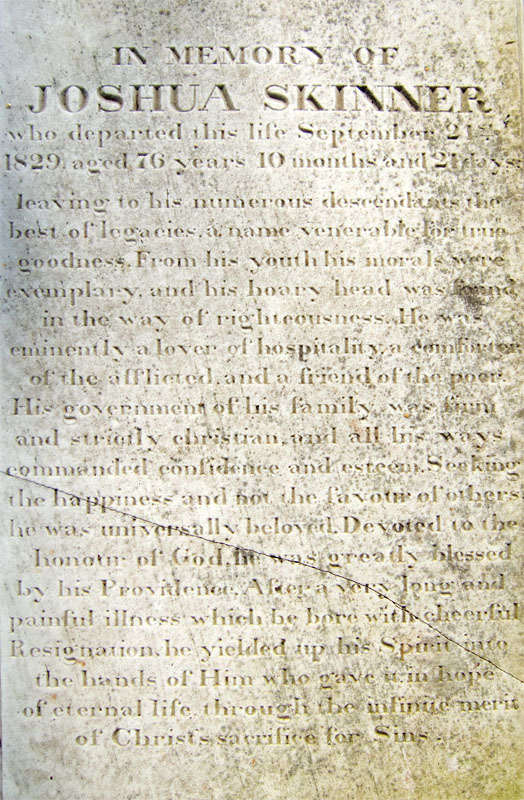 IN MEMORY OF
JOSHUA SKINNER
who departed this life September 21st
1829, aged 76 years 10 months and 21 days
leaving to his numerous descendants the
best of legacies, a name venerable for true
goodness. From his youth his morals were
exemplary, and his hoary head was found
in the way of righteousness. He was
eminently a lover of hospitality, a comforter
of the afflicted, and a friend of the poor.
His government of his family, was firm
and strictly christian, and all his ways
commanded confidence and esteem. Seeking
the happiness and not the favour of others
he was universally beloved. Devoted to the
honour of God, he was greatly blessed
by his Providence. After a very long and
painful illness which he bore with cheerful
Resignation, he yielded up his Spirit into
the hands of Him who gave it, in hope
of eternal life, through the infinite merit
of Christ's sacrifice for Sins.